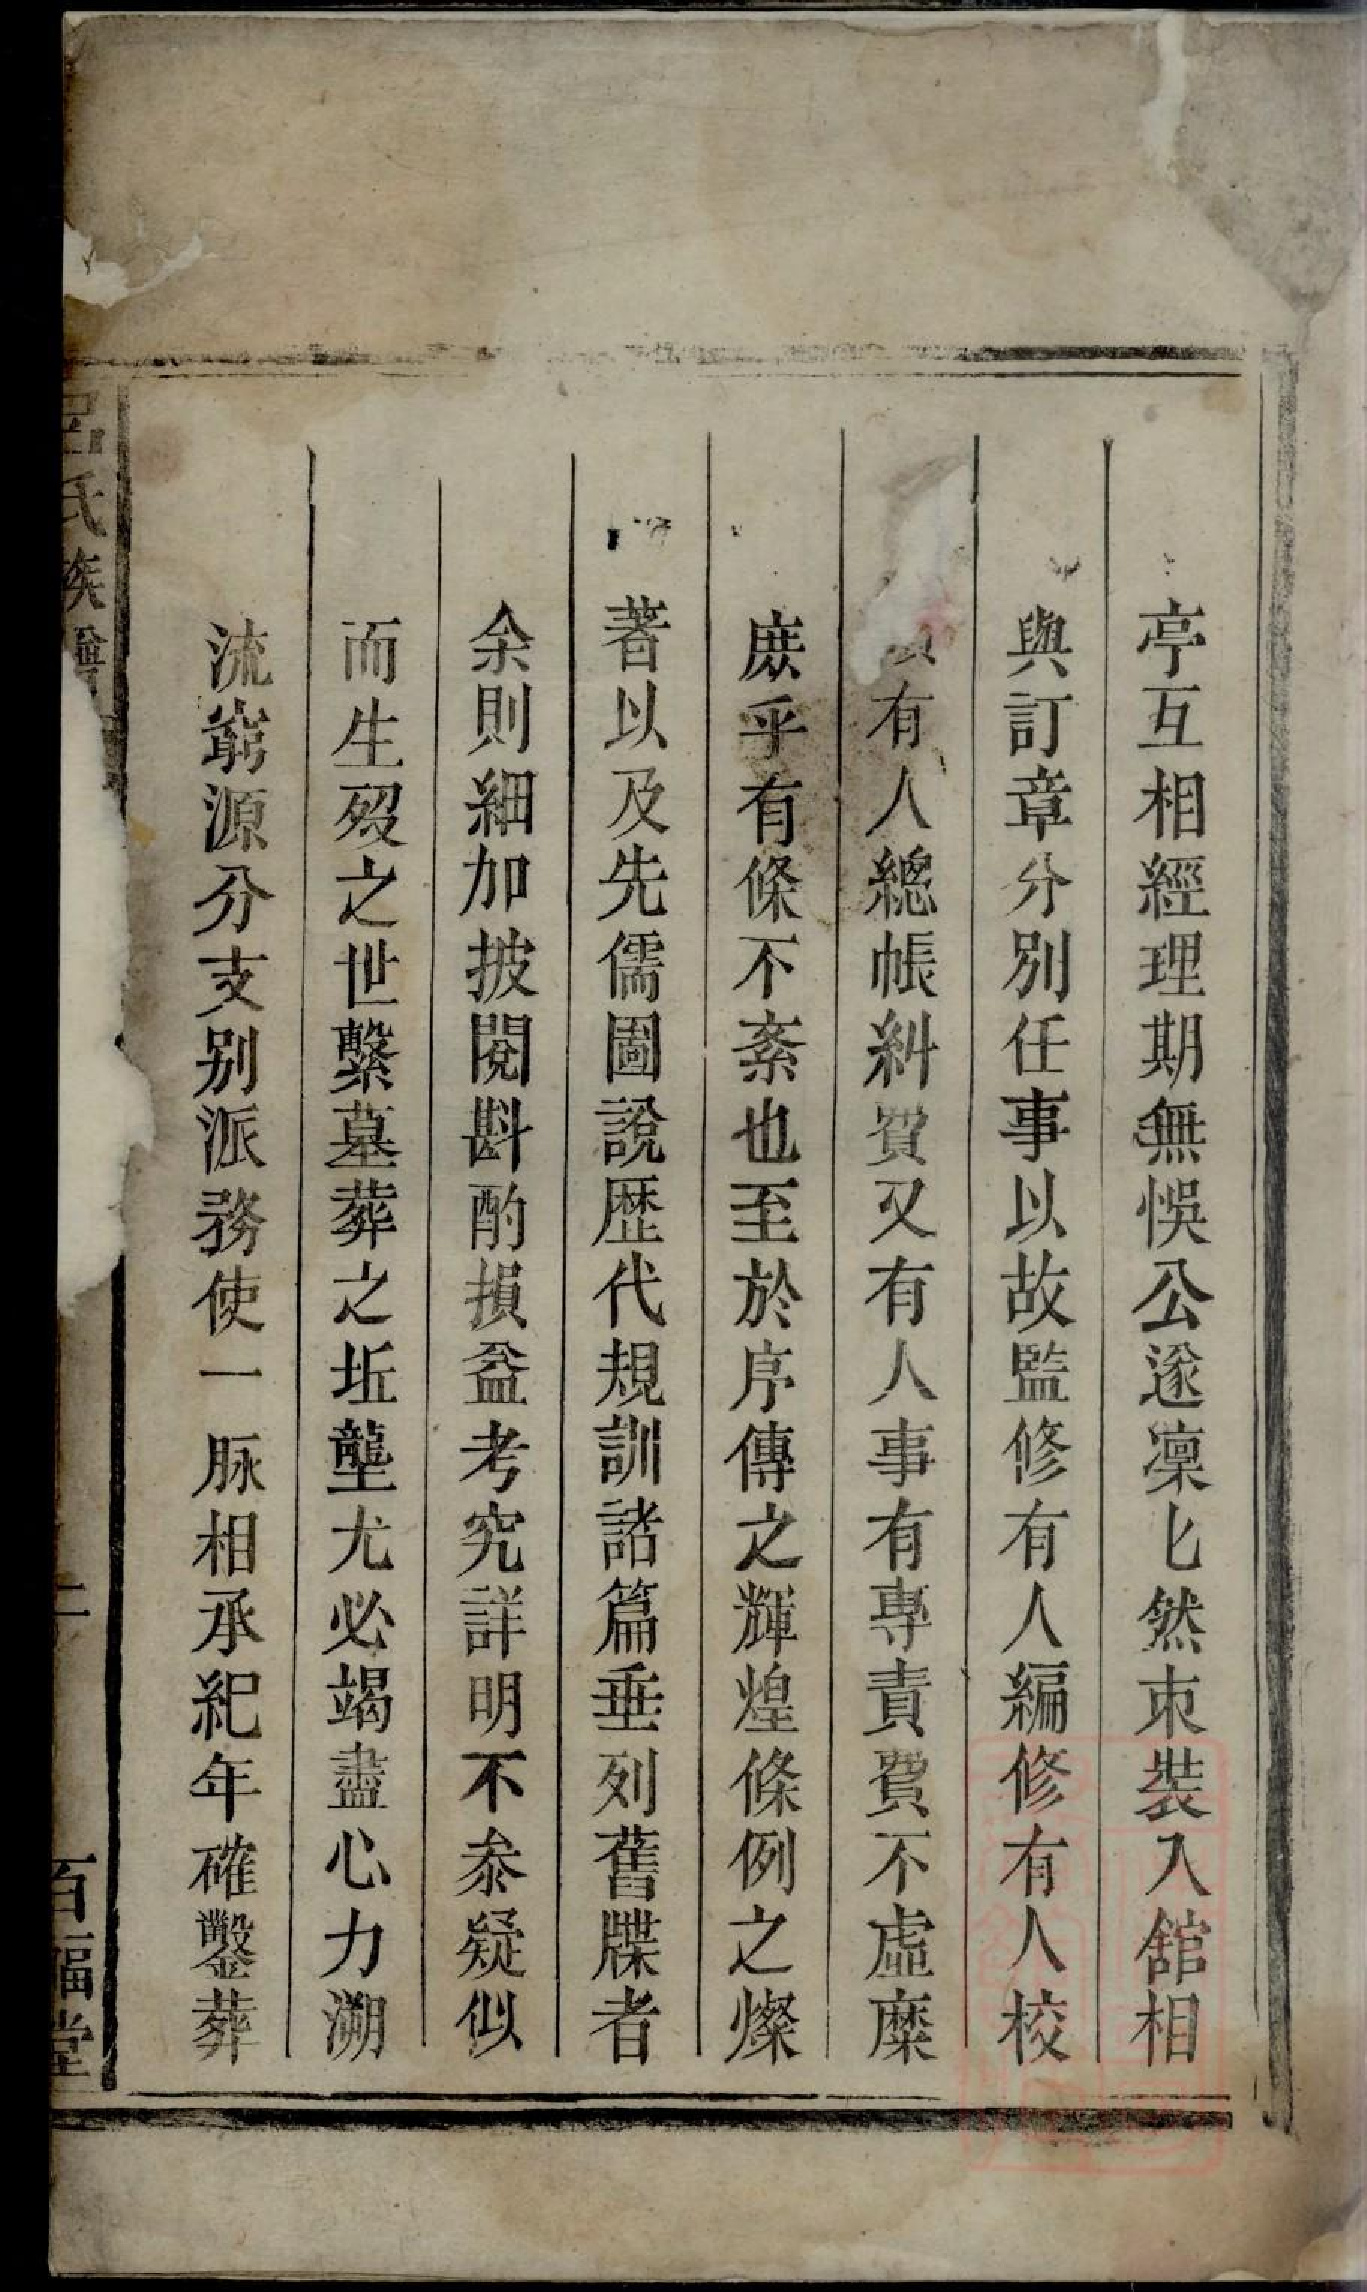 亭互相經理期無悞公遂凜匕然朿裝入舘相
與訂章分別任事以故監修有人編修有人校
有人總帳糾費又有人事有專責費不虛糜
庻乎有條不紊也至於序傳之輝煌條例之燦
著以及先儒圖說歴代規訓誥篇垂列舊牒者
余則細加披閱斟酌損益考究詳明不叅疑似
而生歿之世繫墓葬之坵壟尤必竭盡心力溯
流窮源分支别派務使一脉相承紀年確鑿葬
呂氏族譜
二
百福堂